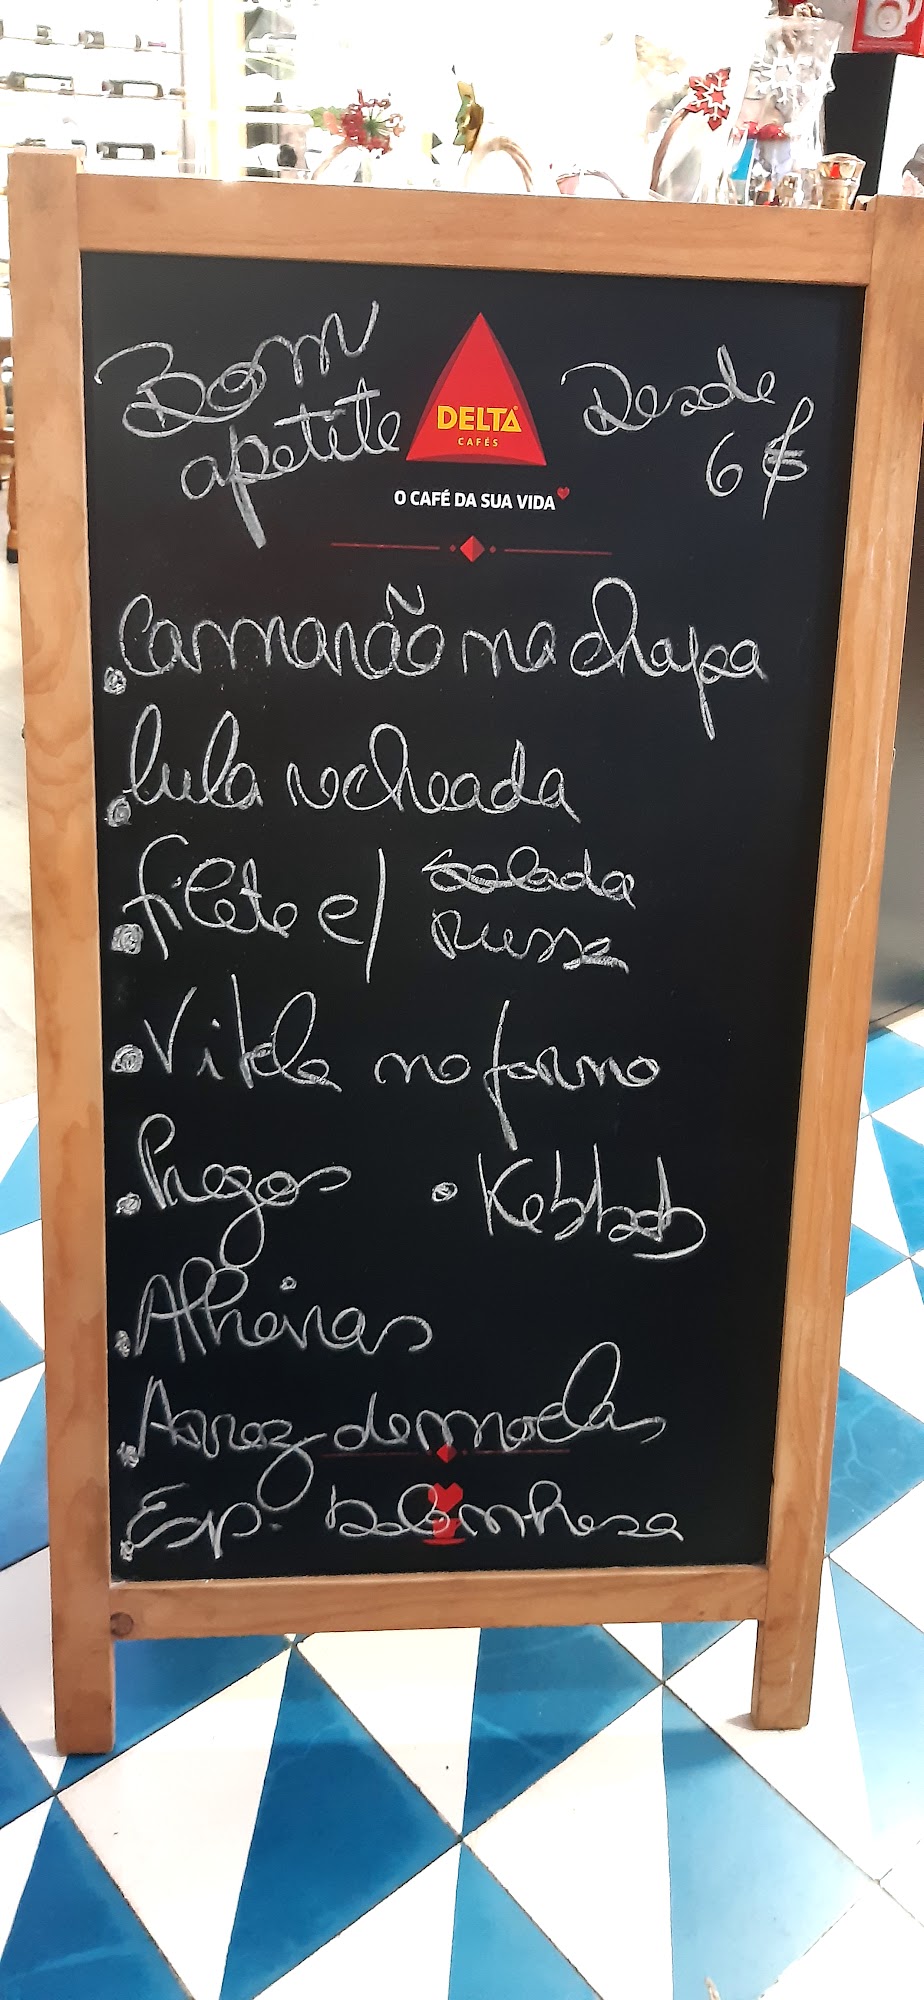 Bom
apetite
DELTA
CAFÉS
O CAFÉ DA SUA VIDA
Desde
6 €
Camarão na chapa
lula recheada
filete c/ salada
Russa
Vitela no forno
Pregos • Kebbab
Alheiras
Arroz de
Esp. bolonhesa